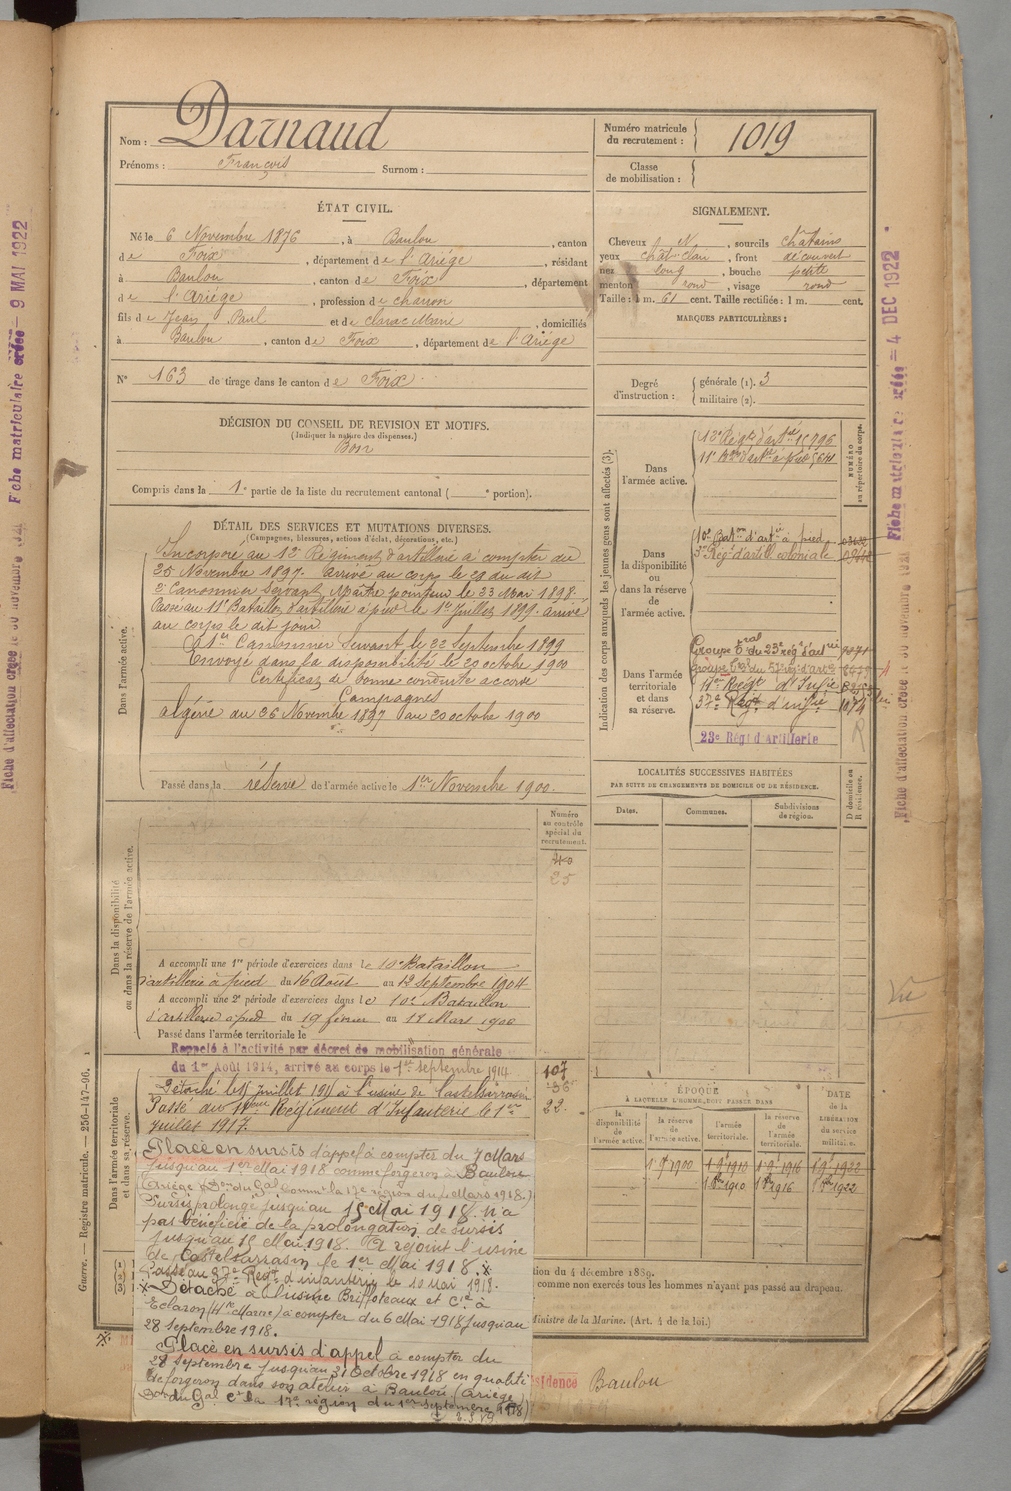 Nom : Darnaud
Prénoms : François Surnom :
Numéro matricule du recrutement : 1019
Classe de mobilisation :
ÉTAT CIVIL.
Né le 6 Novembre 1876, à Baulou, canton
de Foix, département de l'Ariège, résidant
à Baulou, canton de Foix, département
de l'Ariège, profession de charron
fils de Jean Paul et de Clarac Marie, domiciliés
à Baulou, canton de Foix, département de l'Ariège
N° 163 de tirage dans le canton de Foix
SIGNALEMENT.
Cheveux N, sourcils châtains
yeux chât-clair, front découvert
nez long, bouche petite
menton rond, visage rond
Taille : 1 m. 61 cent. Taille rectifiée : 1 m. cent.
MARQUES PARTICULIÈRES :
Degré d'instruction : générale (1). 3
militaire (2).
DÉCISION DU CONSEIL DE REVISION ET MOTIFS.
(Indiquer la nature des dispenses.)
Bon
Compris dans la 1e partie de la liste du recrutement cantonal ( e portion).
DÉTAIL DES SERVICES ET MUTATIONS DIVERSES.
(Campagnes, blessures, actions d'éclat, décorations, etc.)
Dans l'armée active.
Incorporé au 12e Régiment d'artillerie à compter du
25 Novembre 1897. Arrivé au corps le dit
2e Canonnier Servant, Maître pointeur le 23 Mai 1898.
Passé au 11e Bataillon d'artillerie à pied le 1er Juillet 1899. arrivé
au corps le dit jour
1er Canonnier Servant le 22 Septembre 1899
Envoyé dans la disponibilité le 20 octobre 1900
Certificat de bonne conduite accordé
Campagnes
Algérie du 26 Novembre 1897 au 20 octobre 1900
Passé dans la réserve de l'armée active le 1er Novembre 1900.
Indication des corps auxquels les jeunes gens sont affectés (3).
NUMÉRO au répertoire du corps.
Dans l'armée active.
12e Régt d'artie
11e Bon d'artie à pied
Dans la disponibilité ou dans la réserve de l'armée active.
10e Baton d'artie à pied
3e Rég. d'artie coloniale
Dans l'armée territoriale et dans sa réserve.
Groupe tral du 23e rég d'artie
17e Régt d'Infie
37e Régt d'infie
23e Régt d'Artillerie
R
LOCALITÉS SUCCESSIVES HABITÉES
PAR SUITE DE CHANGEMENTS DE DOMICILE OU DE RÉSIDENCE.
Dates. Communes. Subdivisions de région. D domicile ou R résidence.
Dans la disponibilité ou dans la réserve de l'armée active.
Numéro au contrôle spécial du recrutement.
25
A accompli une 1re période d'exercices dans le 10e Bataillon
d'artillerie à pied du 16 Août au 12 Septembre 1904
A accompli une 2e période d'exercices dans le 10e Bataillon
d'artillerie à pied du 19 février au 17 Mars 1906
Passé dans l'armée territoriale le
Dans l'armée territoriale et dans sa réserve.
Rappelé à l'activité par décret de mobilisation générale
du 1er Août 1914, arrivé au corps le 1er septembre 1914
107
22
Détaché le Juillet à l'usine de Castelsarrasin
Passé au Régiment d'Infanterie le 1er
juillet 1917.
Placé en sursis d'appel à compter du 7 Mars
jusqu'au 1er Mai 1918 comme forgeron à Baulou
(Ariège) (Don du Gal Commt la 17e région du Mars 1918.)
Sursis prolongé jusqu'au 15 Mai 1918. N'a
pas bénéficié de la prolongation de sursis
jusqu'au 15 Mai 1918. A rejoint l'usine
de Castelsarrasin le 1er Mai 1918. x
Passé au 37e Régt d'infanterie le 10 mai 1918.
x Détaché à l'usine Briffoteaux et Cie à
Eclaron (Hte Marne) à compter du 6 Mai 1918 jusqu'au
28 septembre 1918.
Placé en sursis d'appel à compter du
28 septembre jusqu'au 31 Octobre 1918 en qualité
de forgeron dans son atelier à Baulou (Ariège)
Don du Gal Ct la 17e région du 1er septembre 1918)
ÉPOQUE
À LAQUELLE L'HOMME DOIT PASSER DANS
la disponibilité de l'armée active. la réserve de l'armée active. l'armée territoriale. la réserve de l'armée territoriale. DATE de la LIBÉRATION du service militaire.
1 9 1900 1 9 1910 1 9 1916 1 9 1922
1 8bre 1910 1 8bre 1916 1 8bre 1922
tion du 4 décembre 1889.
comme non exercés tous les hommes n'ayant pas passé au drapeau.
Ministre de la Marine. (Art. 4 de la loi.)
sidence Baulou
Vu
Guerre. — Registre matricule. — 256-147-96.
Fiche matriculaire créée – 9 MAI 1922
Fiche d'affectation créée le 30 novembre
4 DEC 1922
Fiche d'affectation créée le 30 novembre